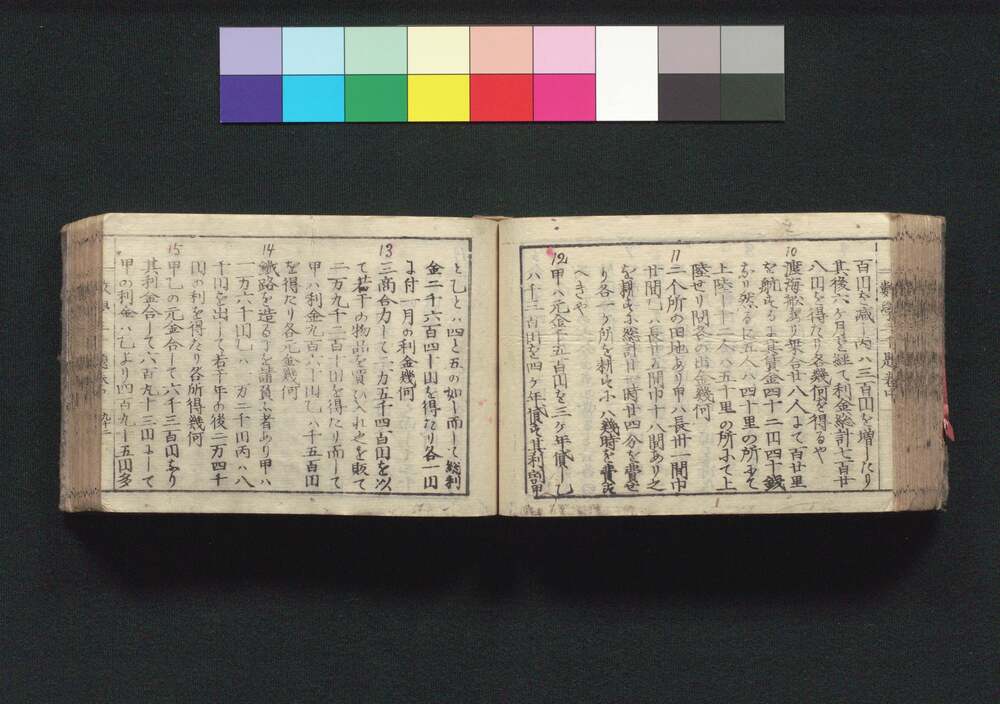 百円を減し丙ハ三百円を増したり
其後六ヶ月を経て利金総計七百廿
八円を得たり各幾何を得るや
10
渡海船あり乗合廿八人にて百廿里
を航するに其賃金四十二円四十銭
なり然るに五人ハ四十里の所にて
上陸し十二人ハ五十里の所にて上
陸せり問各の出金幾何
11
二个所の田地あり甲ハ長卅一間巾
廿間乙ハ長廿五間巾十八間あり之
を耕すに総計廿一時廿四分を費せ
り各一ヶ所を耕すにハ幾時を費す
へきや
12
甲ハ元金千五百円を三ヶ年債し乙
ハ千三百円を四ヶ年債す其利割甲
と乙とハ四と五の如し而して総利
金二千六百四十円を得たり各一円
に付一月の利金幾何
13
三商合力して二万五千四百円を以
て若干の物品を買ひ入れ之を販て
二万九千二百十円を得たり而して
甲ハ利金九百六十円乙ハ千五百円
を得たり各元金幾何
14
鐵路を造る丁を請負ふ者あり甲ハ
一万六千円乙ハ一万二千円丙ハ八
千円を出して若干年の後二万四千
円の利を得たり各所得幾何
15
甲乙の元金合して六千三百円あり
其利金合して六百九十三円にして
甲の利金ハ乙より四百九十五円多